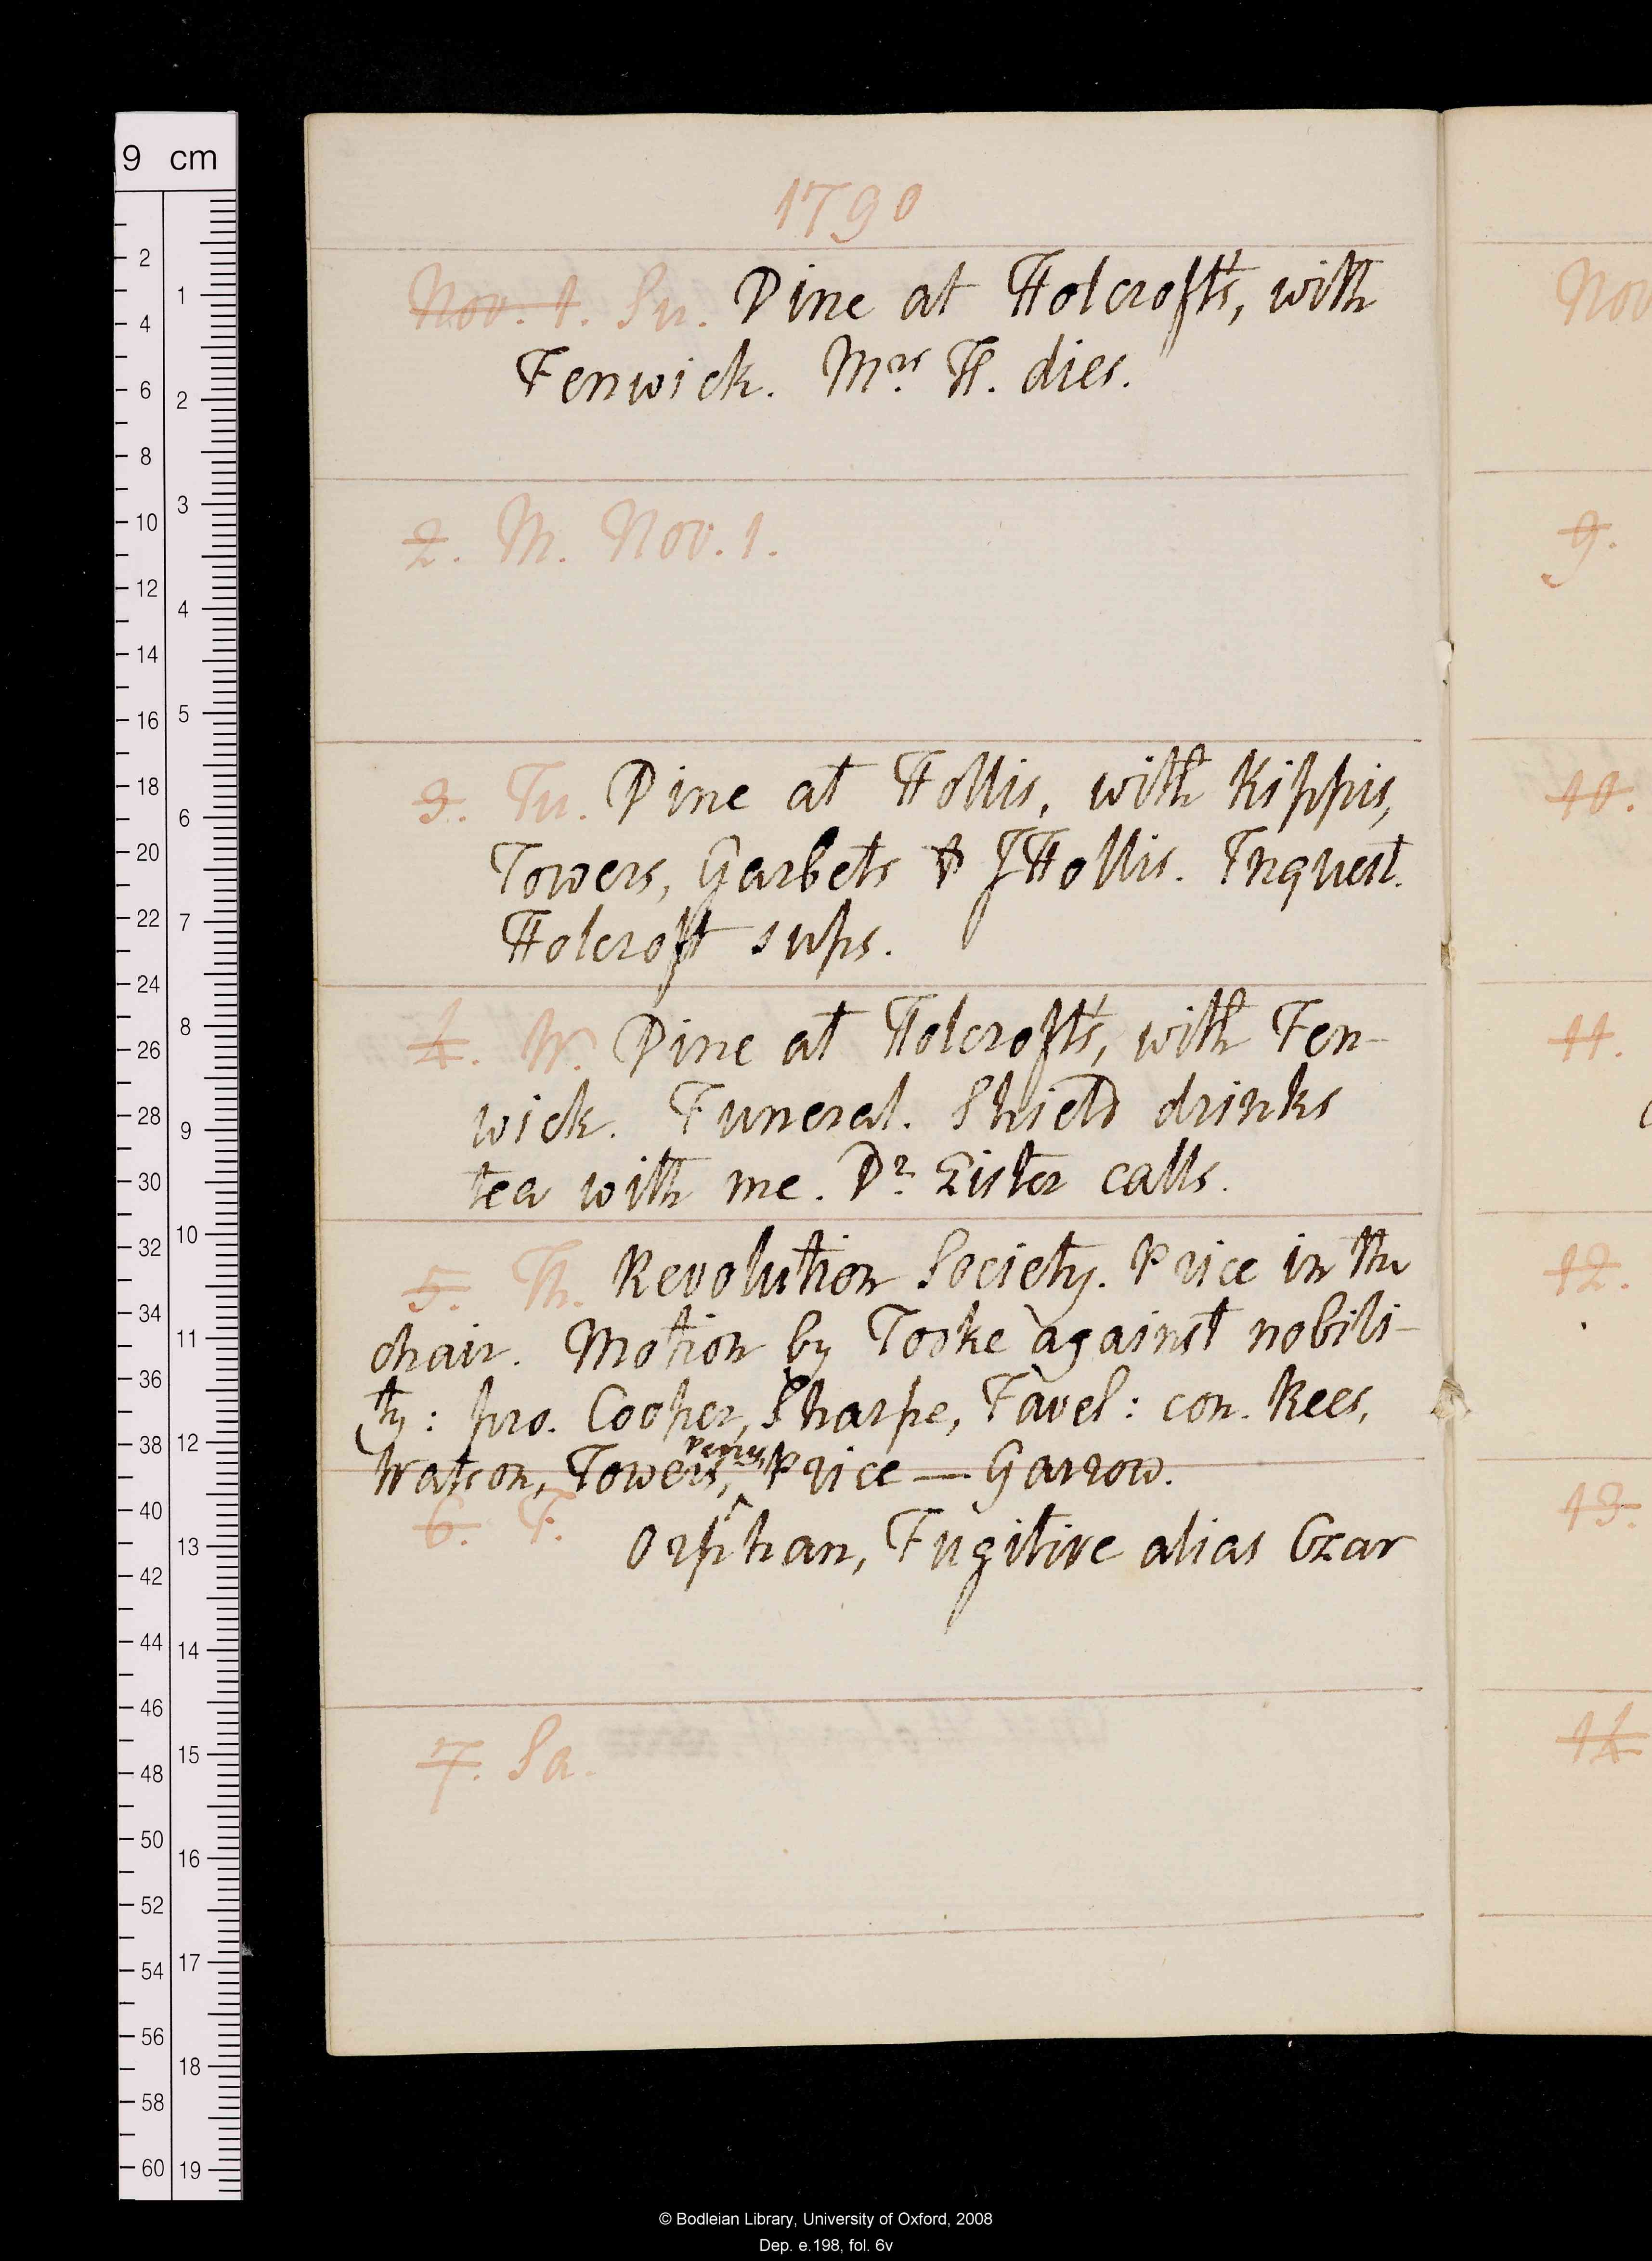 9 cm
1790
Nov. 1. Su. Dine at Holcroft's, with
Fenwick. Mrs H. dies.
2. M. Nov. 1.
3. Tu. Dine at Hollis, with Kippis,
Towers, Garbets & J Hollis. Inquest.
Holcroft sups.
4. W. Dine at Holcroft's, with Fen-
wick. Funeral. Shield drinks
tea with me. Dr. Lister calls.
5. Th. Revolution Society. Price in the
chair. Motion by Tooke against nobili-
ty: pro. Cooper, Sharpe, Favel: con. Rees,
Watson, Towers, Price — Garrow.
6. F. Orphan, Fugitive alias Czar
7. Sa.
Nov
9.
10.
11.
12.
13.
14
2 4 6 8 10 12 14 16 18 20 22 24 26 28 30 32 34 36 38 40 42 44 46 48 50 52 54 56 58 60
1 2 3 4 5 6 7 8 9 10 11 12 13 14 15 16 17 18 19
© Bodleian Library, University of Oxford, 2008
Dep. e.198, fol. 6v